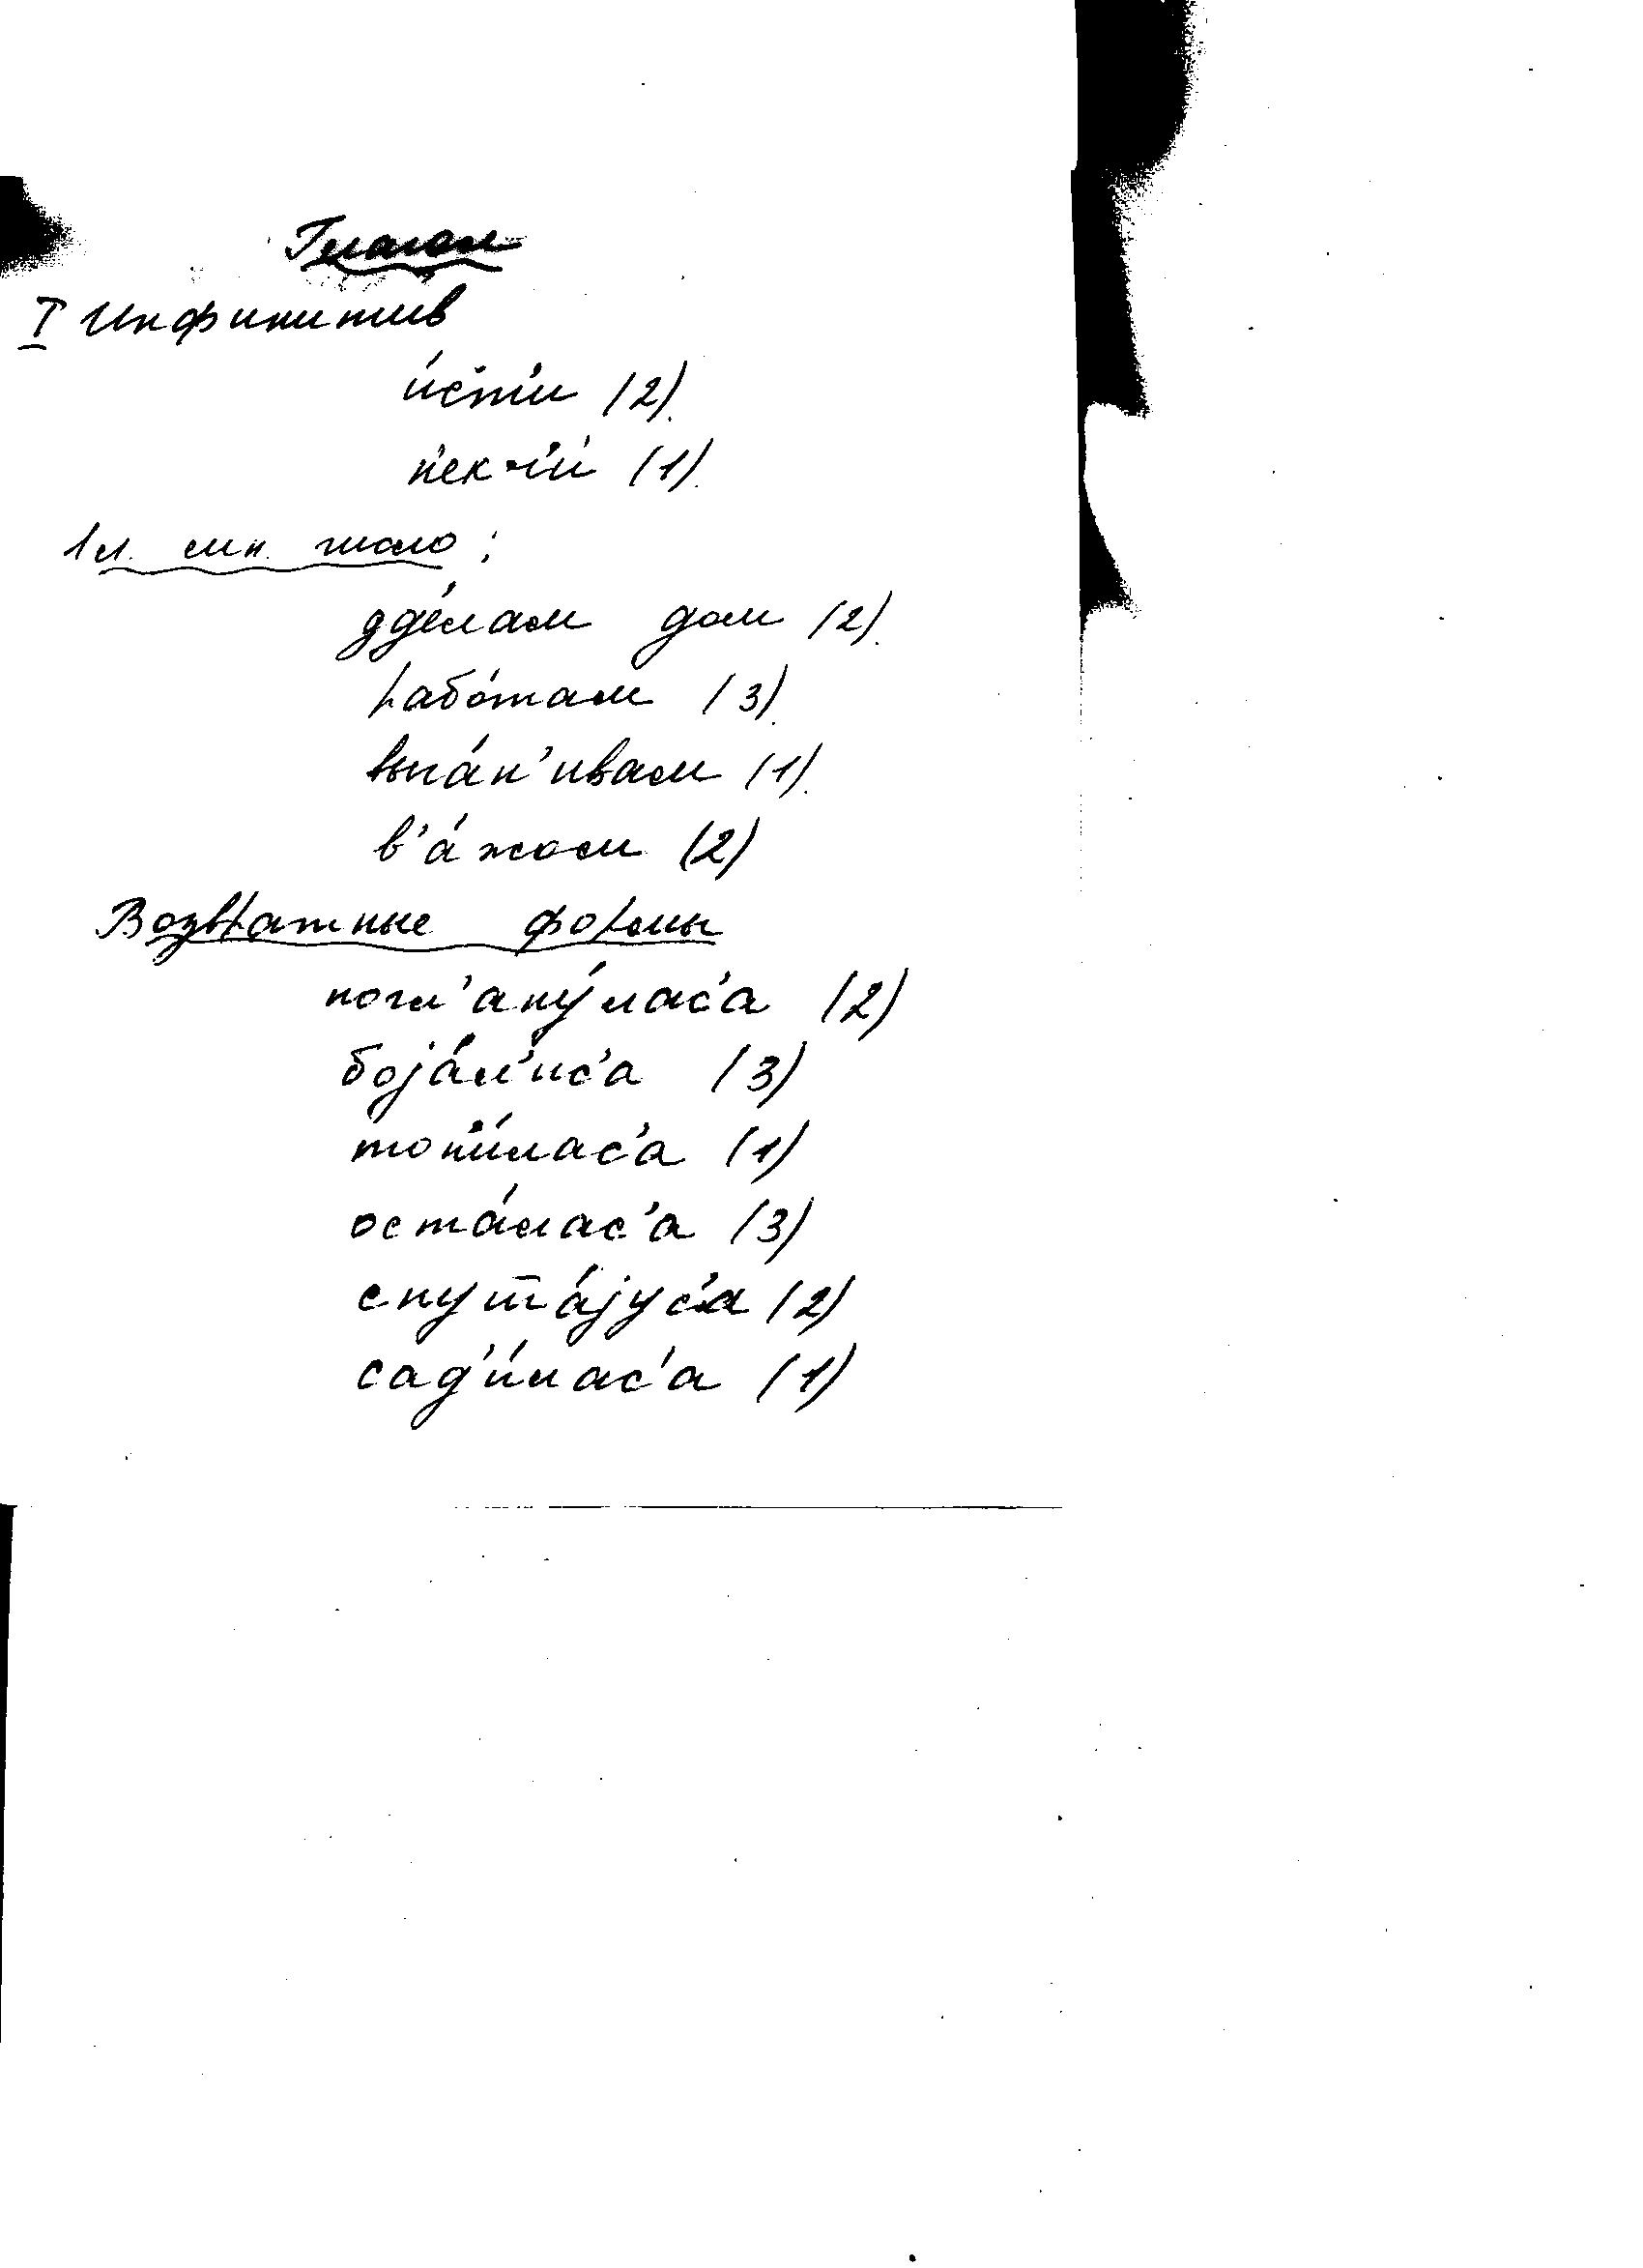 Глагол
I Инфинитив
и́с'т'и (2).
п'ек чи́ (1).
1 л. мн. число:
д'де́лам дом (2).
рабо́там (3).
выга́н'ивам (1).
в'а́жом (2)
Возвратные формы
погл'ану́лас'а (2)
боја́л'ис'а (3)
топ'и́лас'а (1)
оста́лас'а (3)
спута́јус'а (2)
сад'и́лас'а (1)